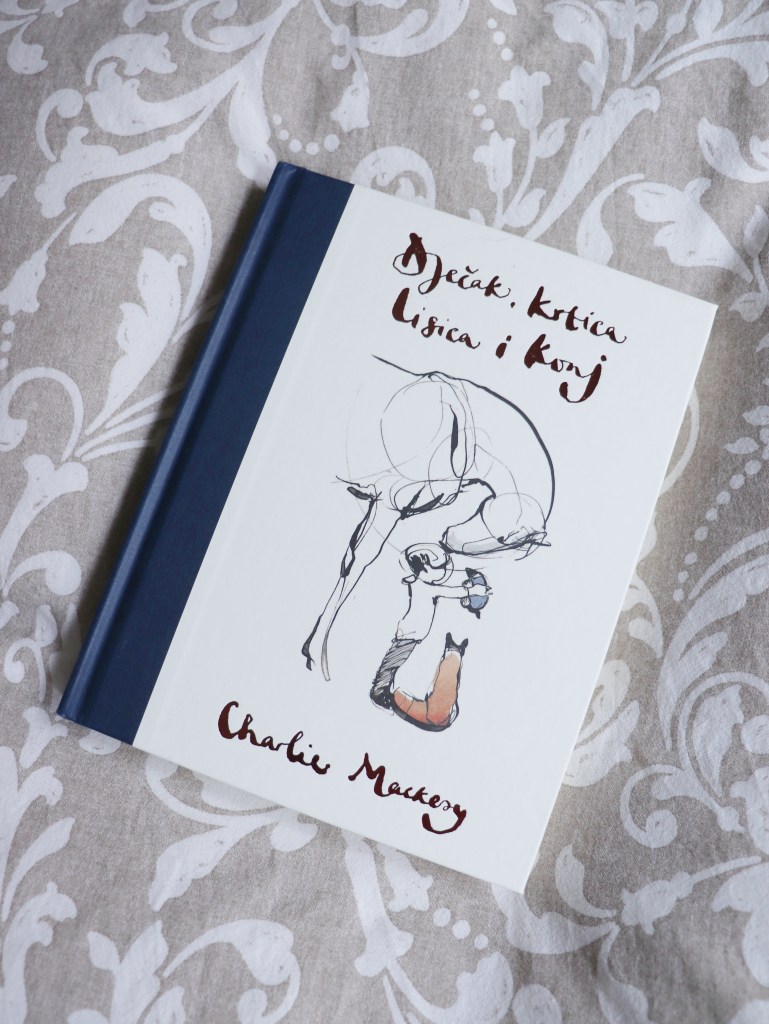 Dječak, krtica
Lisica i Konj
Charlie Mackesy